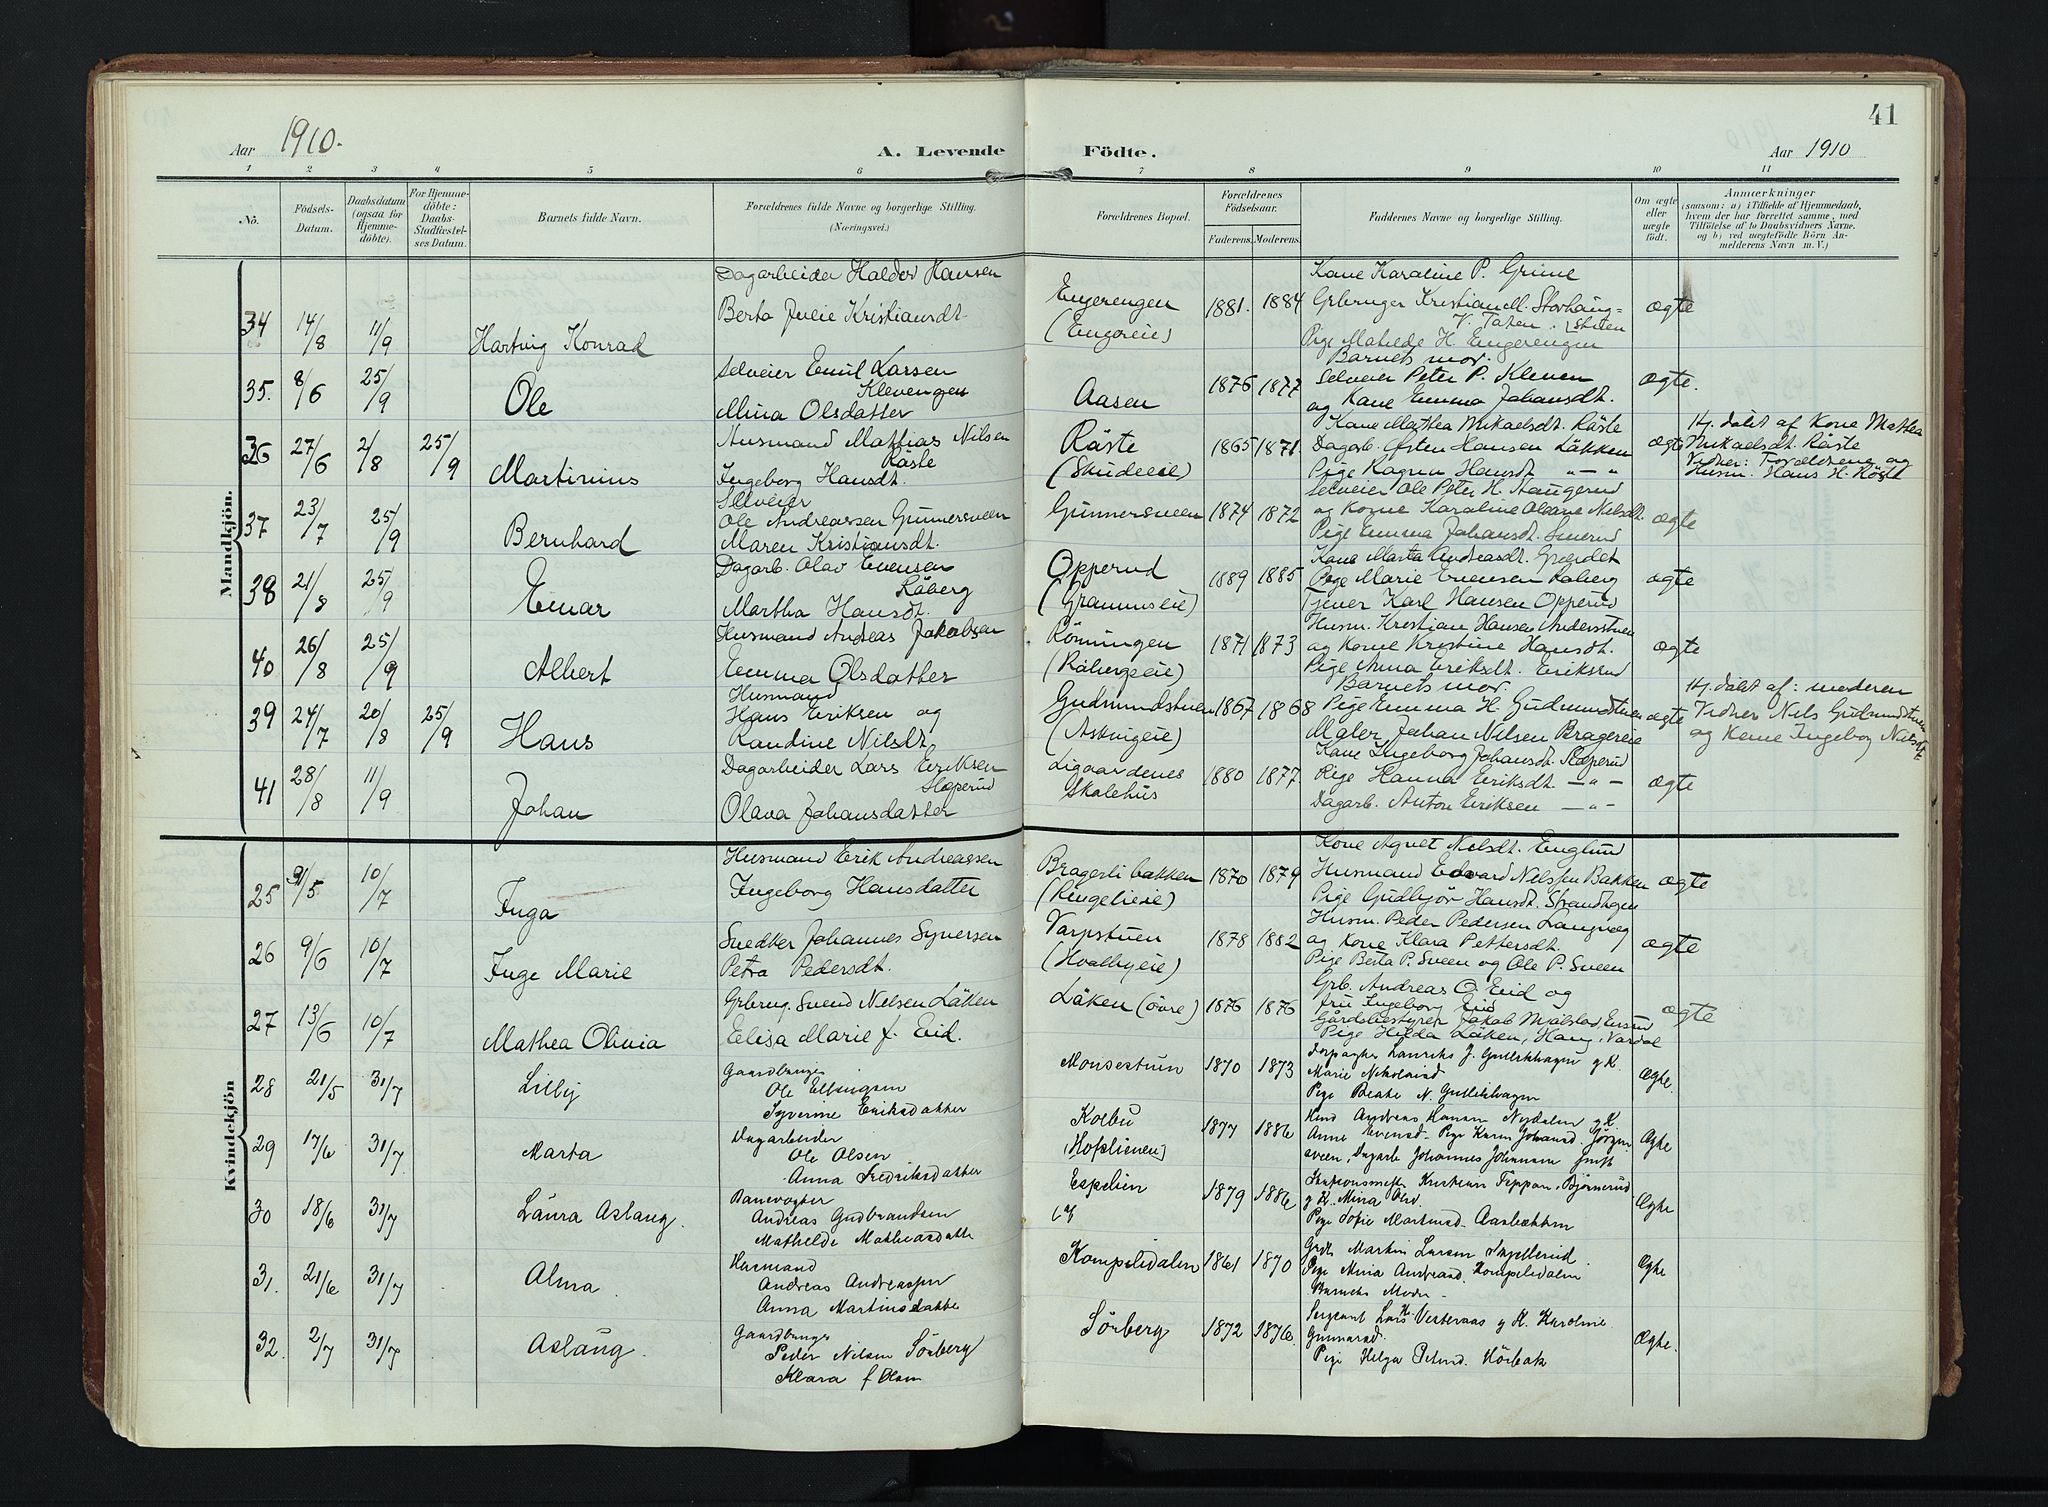 41
Aar 1910.
A. Levende
Födte.
Aar 1910
1 2 3 4 5 6 7 8 9 10 11
No.
Födsels-
Datum.
Daabsdatum
(ogsaa for
Hjemme-
döbte).
For Hjemme-
döbte:
Daabs-
Stadfæstel-
ses Datum.
Barnets fulde Navn.
Forældrenes fulde Navne og borgerlige Stilling.
(Næringsvei.)
Forældrenes Bopæl.
Forældrenes
Födselsaar.
Faderens. Moderens.
Faddernes Navne og borgerlige Stilling.
Om ægte
eller
uægte
födt.
Anmærkninger
(saasom: a) i Tilfælde af Hjemmedaab,
hvem der har forrettet samme, med
Tilföielse af to Daabsvidners Navne.
og b) ved uægtefödte Börn An-
melderens Navn m. V.)
Mandkjön.
34 14/8 11/9 Hartvig Konrad
Dagarbeider Haldor Hansen
Berta Julie Kristiansdt.
Engerengen
(Engereie)
1881. 1884
Kone Karoline P. Grime
Grbruger Kristian M. Storhaug-
V. Toten
Pige Matilde H. Engerengen
ægte
35. 8/6 25/9 Ole
Selveier Emil Larsen
Klevengen
Mina Olsdatter
Aasen
1876 1877
Barnets mor.
Selveier Peter P. Kleven
og Kone Emma Johansdt.
ægte.
36 27/6 2/8 25/9 Martinius
Husmand Mathias Nilsen
Röste
Ingeborg Hansdt.
Röste
(Skudeeie)
1865 1871.
Kone Mathea Mikaelsdt. Röste
Dagarb. Østen Hansen Løkken
Pige Ragna Hansdt. — „ —
ægte
Hj. döbt af Kone Mathea
Mikaelsdt. Röste
Vidner: Forældrene og
Husm. Hans H. Röste
37 23/7 25/9 Bernhard
Selveier
Ole Andreassen Gunnersveen
Maren Kristiansdt.
Gunnersveen
1874 1872
Selveier Ole Peter H. Haugerud
og Kone Karoline Oleane Nilsdt.
Pige Emma Johansdt. Smerud
ægte
38 21/8 25/9 Einar
Dagarb. Olav Evensen
Råberg
Martha Hansdt.
Opperud
(Grammseie)
1889 1885
Kone Marta Andreasdt.
Pige Marie Evensen Råberg
Tjener Karl Hansen Opperud
ægte
40 26/8 25/9 Albert
Husmand Andreas Jakobsen
Emma Olsdatter
Rönningen
(Råbergseie)
1871 1873
Husm. Kristian Hansen Andersstuen
og Kone Kristine Hansdt.
Pige Anna Eriksdt. Eriksrud
ægte
39 24/7 20/8 25/9 Hans
Husmand
Hans Eriksen og
Randine Nilsdt.
Gudmundstuen
(Askvigeie)
1867 1868
Barnets mor.
Pige Emma H. Gudmundstuen
Maler Johan Nilsen Bragereie
ægte
Hj. döbt af: moderen
Vidner Nils Gudmundstuen
og Kone Ingeborg Nilsdt.
41 28/8 11/9 Johan
Dagarbeider Lars Eriksen
Slaperud
Olava Johansdatter
Ligaardenes
Skolehus
1880 1877
Kone Ingeborg Johansdt. Slaperud
Pige Hanna Eriksdt. — „ —
Dagarb. Anton Eriksen — „ —
ægte
Kvindekjön
25 9/5 10/7 Inga
Husmand Erik Andreassen
Ingeborg Hansdatter
Bragerli bakken
(Ringelieie)
1870 1879
Kone Agnet Nilsdt. Englund
Husmand Edvard Nilssen Bakken
Pige Gudbjör Hansdt. Strandhagen
ægte
26 9/6 10/7 Inge Marie
Snedker Johannes Syversen
Petra Pedersdt.
Varpstuen
(Hvalbyeie)
1878 1882
Husm. Peder Pedersen Langveg
og Kone Klara Pettersdt.
Pige Berta P. Sveen og Ole P. Sveen
ægte
27 13/6 10/7 Mathea Olivia
Grbrug. Svend Nilsen Löken
Elisa Marie f. Eid.
Löken (övre)
1876 1876
Grb. Andreas O. Eid og
fru Ingeborg Eid
Gårdsbestyrer Jakob Mjølstad,
Pige Hilda Löken, Haug, Vardal
ægte
28 21/5 31/7 Lilly
Gaardbruger
Ole Ellingsen
Syverine Eriksdatter
Monsestuen
1870 1873
Marie Nikolaisd
Pige Beate N. Gullikhagen
Ægte.
29 17/6 31/7 Marta
Dagarbeider
Ole Olsen
Anna Fredriksdatter
Kolbu
(Hofslienen)
1877 1886
Andreas Hansen Nordalen g K.
Anne Evensd. Pige Karen Johansd. Jörgen-
sveen, Dagarb Johannes Johansen
Ægte
30 18/6 31/7 Laura Aslaug.
Banevogter
Andreas Gudbrandsen
Mathilde Mathiasdatter
Espelien
1879 1886
Stationsmester Kristian Feppen, Björnerud
g K. Mina Olsd.
Pige Sofie Martinsd. Aasbakken
Ægte
31. 21/6 31/7 Alma
Husmand
Andreas Andreassen
Anna Martinsdatter
Kompelidalen
1861 1870
Martin Larsen
Pige Mina Andreasd. Kompelidalen
Barnets Moder -
Ægte
32. 2/7 31/7 Aslaug.
Gaardbruger
Peder Nilsen Sörberg
Klara f Olsen
Sörberg
1872 1876.
Sergeant Lars H. Vesteraas g K. Karoline
Gunnarsd.
Pige Helga Pedersd. Hörbak
Ægte.